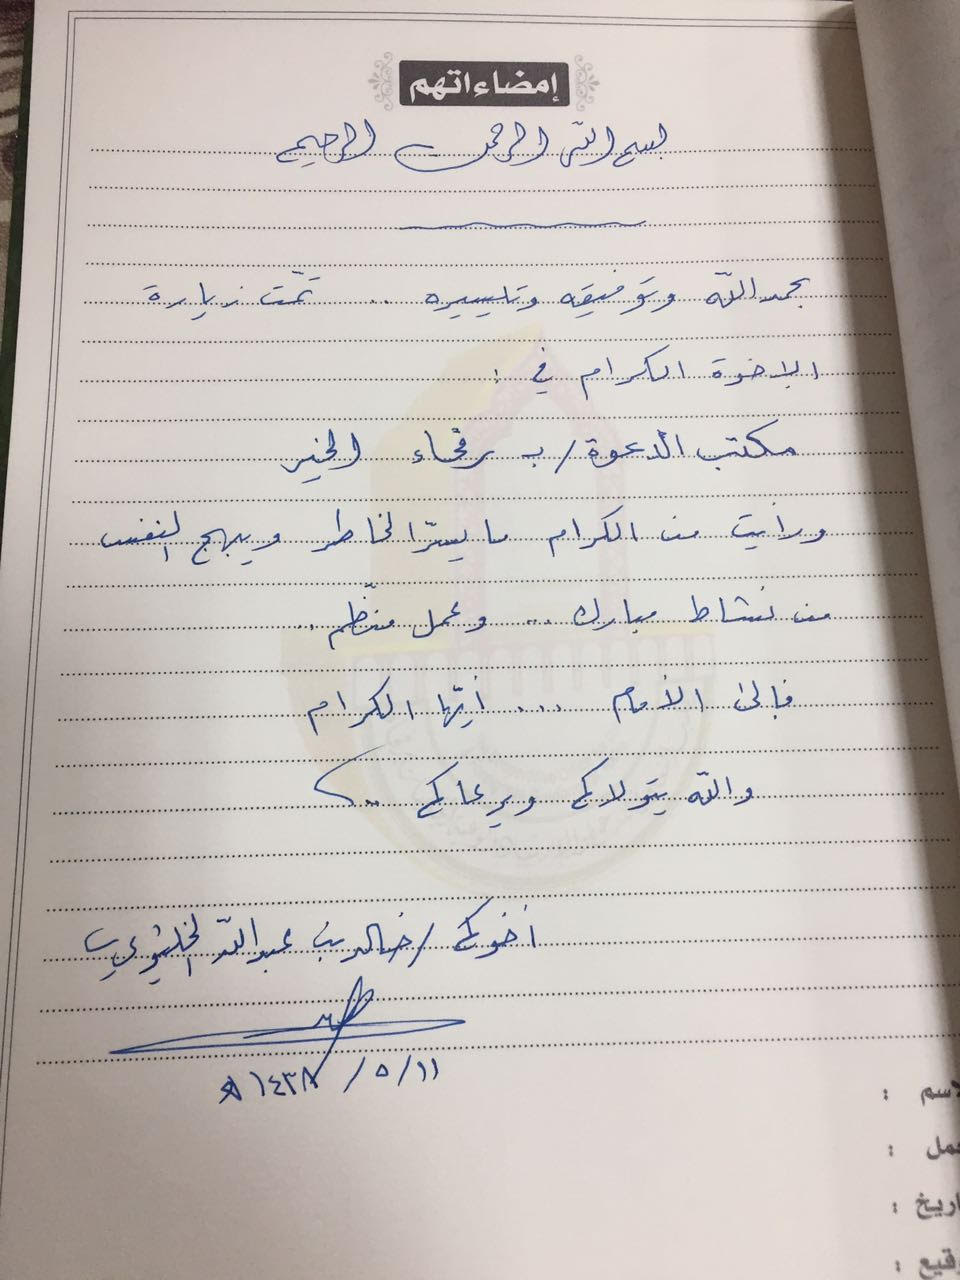 إمضاءاتهم
بسم الله الرحمن الرحيم
بحمد الله وتوفيقه وتيسيره .. تمّت زيارة
الإخوة الكرام في :
مكتب الدعوة / بـ رفحاء الخير
ورأيت من الكرام ما يسرّ الخاطر ويبهج النفس
من نشاط مبارك ... وعمل منظّم ..
فإلى الأمام ... أيّها الكرام
والله يتولاكم ويرعاكم ..
أخوكم / خالد بن عبدالله
١١ / ٥ / ١٤٣٨ هـ
الاسم :
العمل :
التاريخ :
التوقيع :